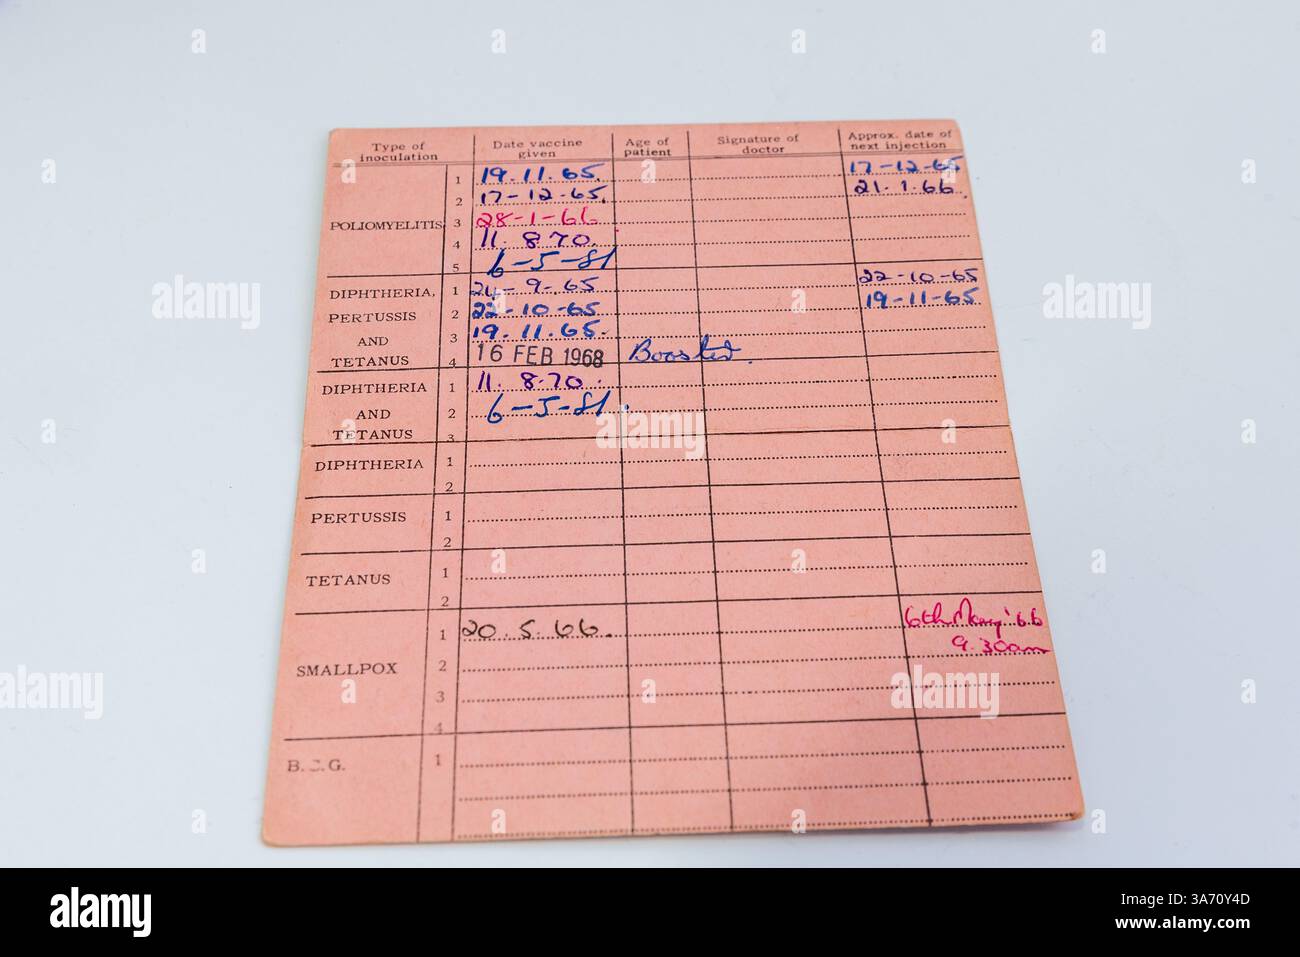 Type of inoculation Date vaccine given Age of patient Signature of doctor Approx. date of next injection
POLIOMYELITIS
1 19.11.65. 17-12-65
2 17-12-65. 21.1.66
3 28-1-66
4 11.8.70.
5 6-5-81
DIPHTHERIA, PERTUSSIS AND TETANUS
1 24-9-65 22-10-65
2 22-10-65 19-11-65
3 19.11.65.
4 16 FEB 1968 Boosted.
DIPHTHERIA AND TETANUS
1 11.8.70.
2 6-5-81.
3
DIPHTHERIA
1
2
PERTUSSIS
1
2
TETANUS
1
2
SMALLPOX
1 20.5.66. 6th May '66
9.30am
2
3
4
B.C.G. 1
alamy
Image ID: 3A70Y4D
www.alamy.com